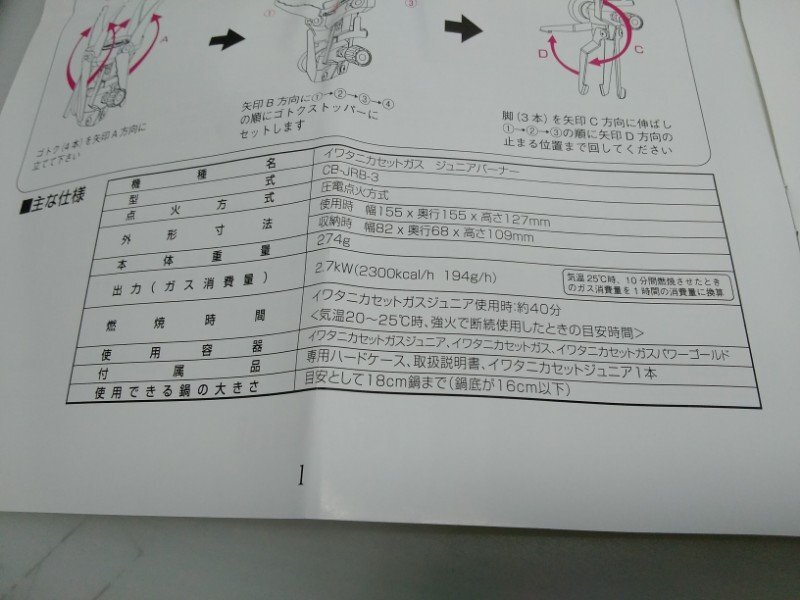 A
①
③
D
C
ゴトク(4本)を矢印A方向に
立てて下さい
矢印B方向に①→②→③→④
の順にゴトクストッパーに
セットします
脚(3本)を矢印C方向に伸ばし
①→②→③の順に矢印D方向の
止まる位置まで回してください
■主な仕様
機種名 イワタニカセットガス ジュニアバーナー
型式 CB-JRB-3
点火方式 圧電点火方式
外形寸法 使用時 幅155×奥行155×高さ127mm
収納時 幅82×奥行68×高さ109mm
本体重量 274g
出力(ガス消費量) 2.7kW(2300kcal/h 194g/h)
気温25℃時、10分間燃焼させたとき
のガス消費量を1時間の消費量に換算
燃焼時間 イワタニカセットガスジュニア使用時:約40分
<気温20〜25℃時、強火で断続使用したときの目安時間>
使用容器 イワタニカセットガスジュニア、イワタニカセットガス、イワタニカセットガスパワーゴールド
付属品 専用ハードケース、取扱説明書、イワタニカセットジュニア1本
使用できる鍋の大きさ 目安として18cm鍋まで(鍋底が16cm以下)
1